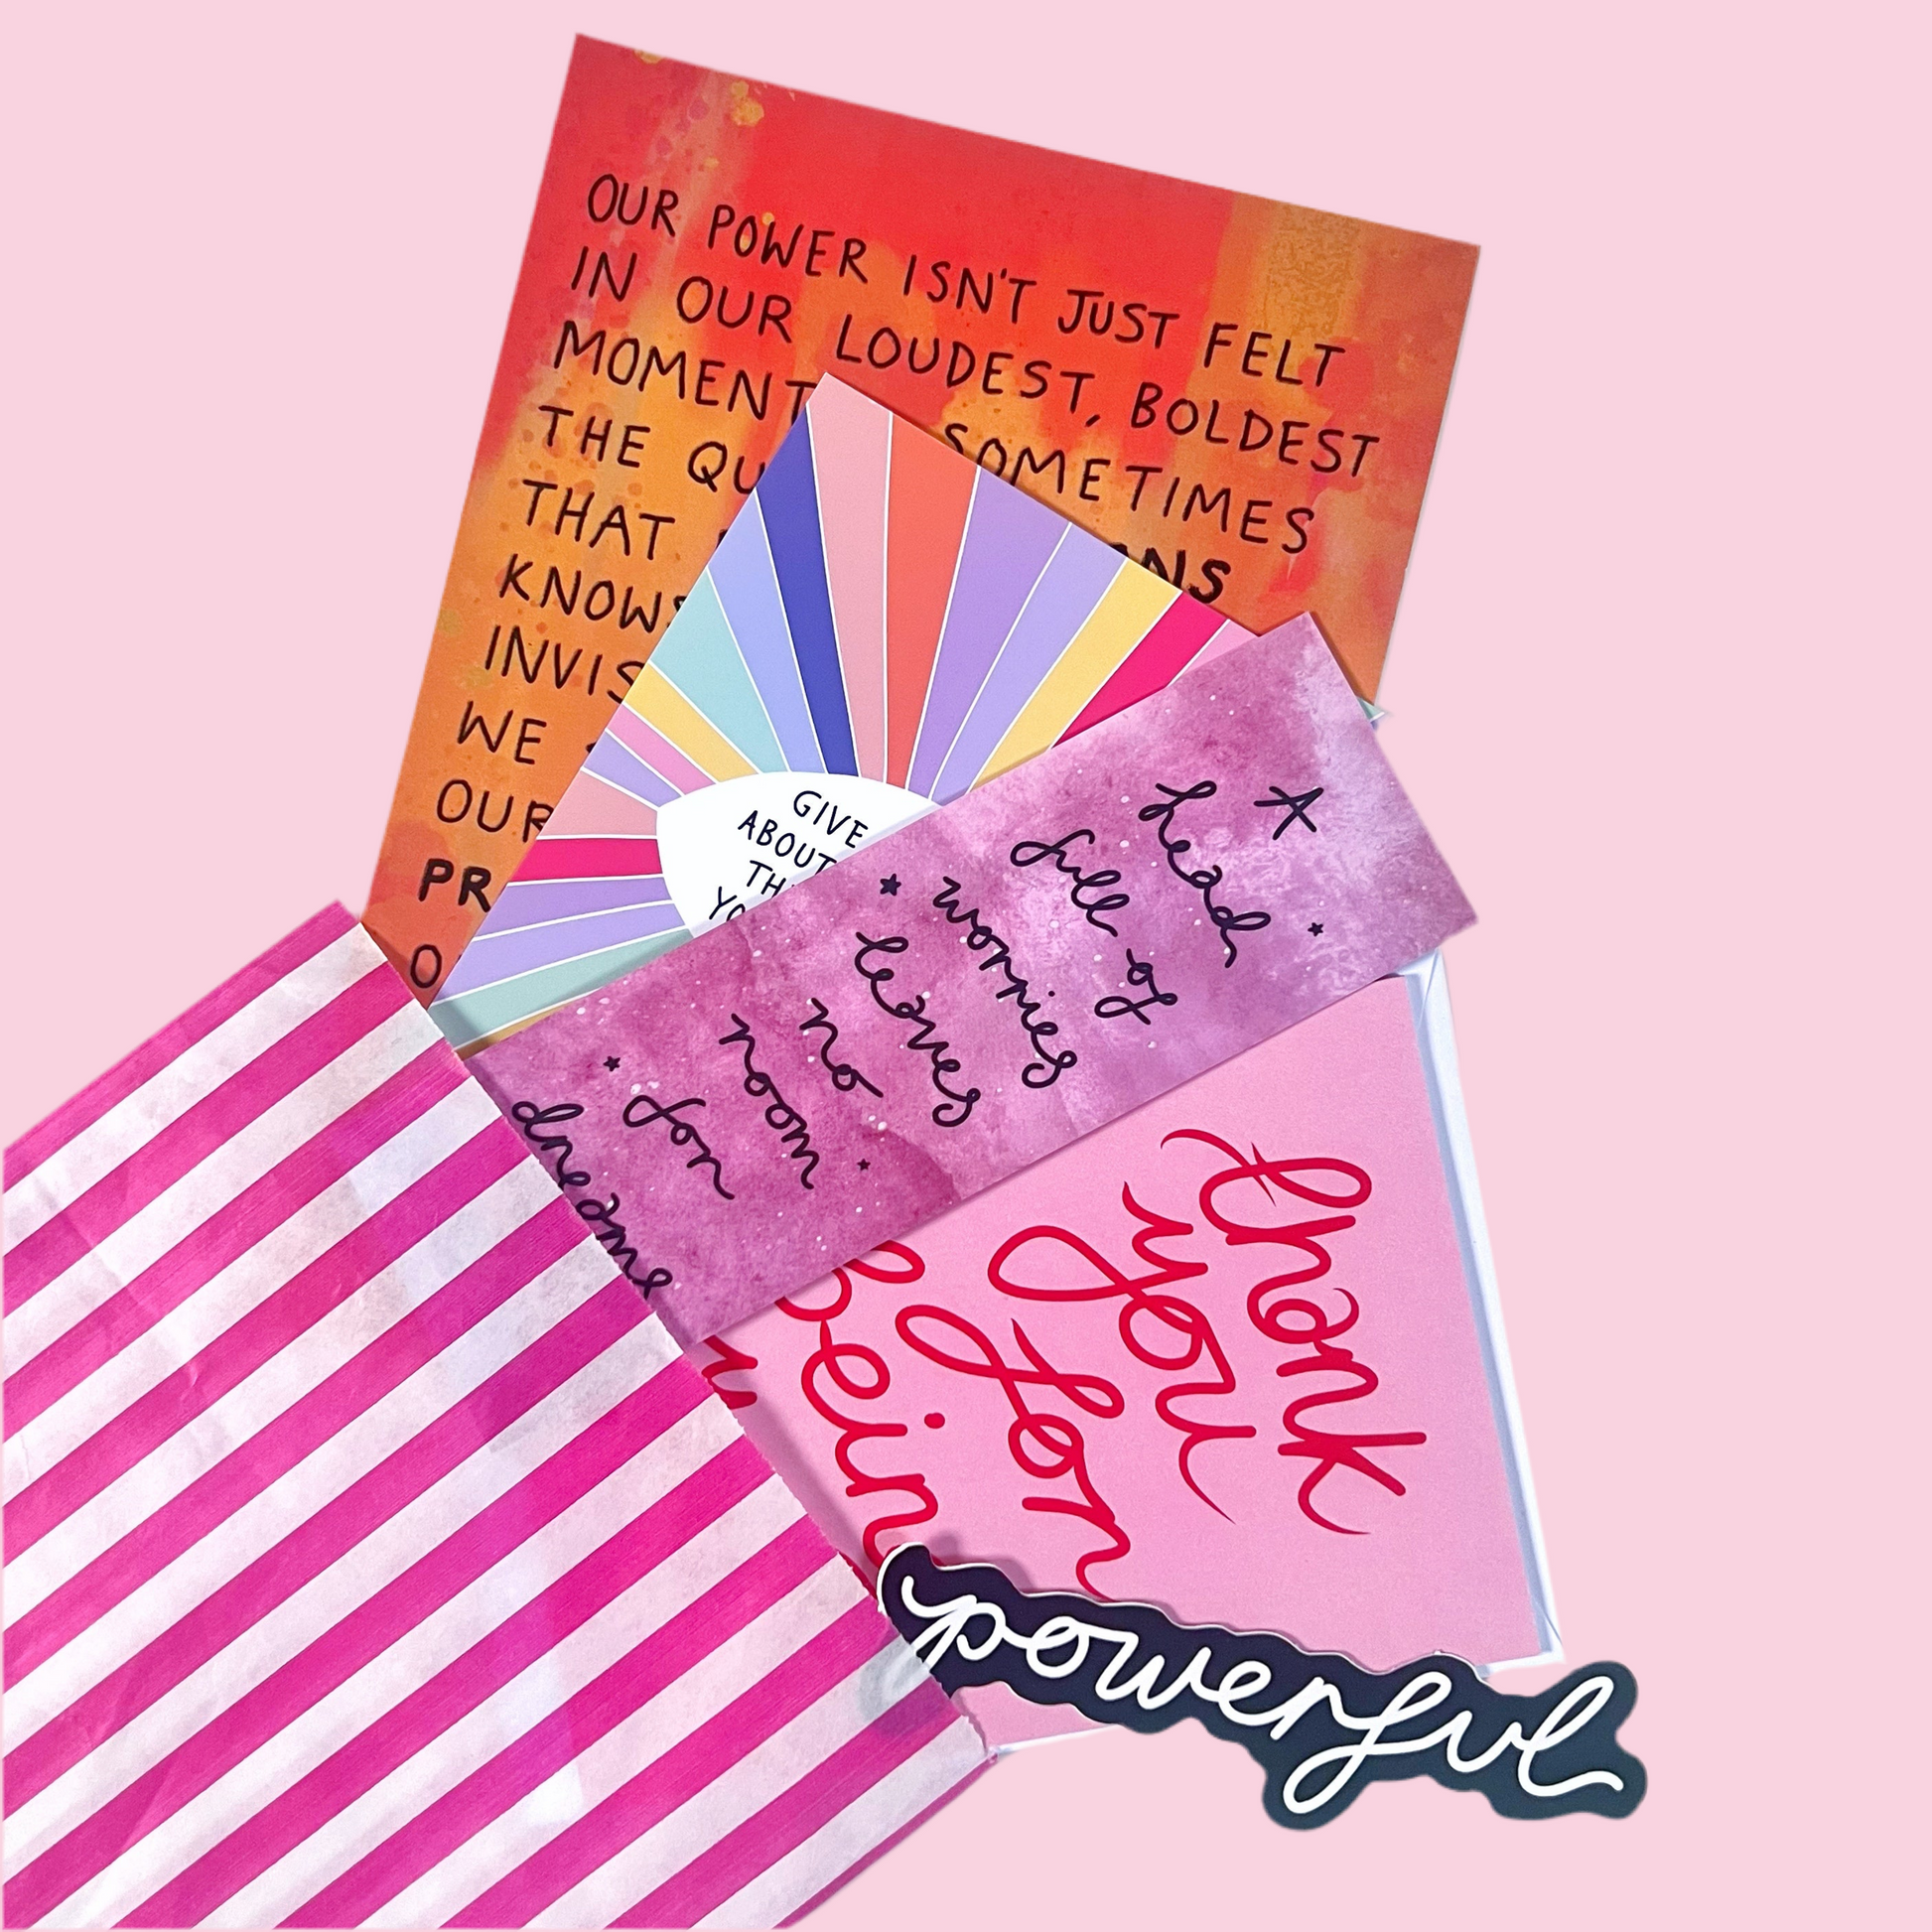 OUR POWER ISN'T JUST FELT
IN OUR LOUDEST, BOLDEST
MOMENT SOMETIMES
THE
THAT
KNOWS
WE
OUR
GIVE
ABOUT
A
head
full of
worries
leaves
no
room
for
dreams
thank
you
for
Bein
powerful